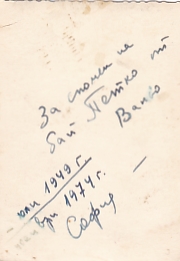 За спомен на
бай Петко от
Ванко
юли 1949 г.
януари 1974 г.
София